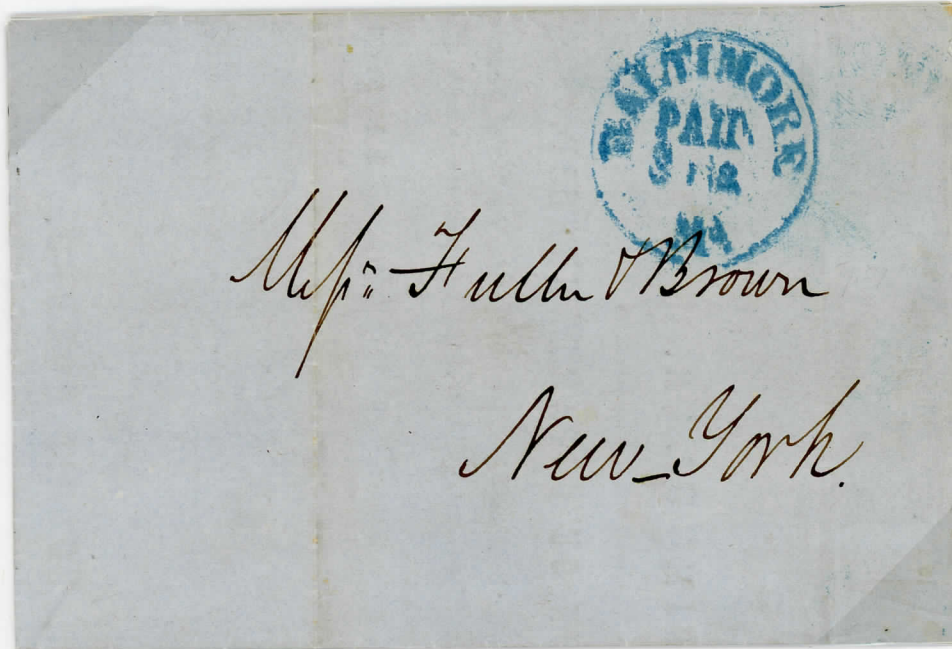 BALTIMORE
PAID
Md
Messrs Fuller & Brown
New-York.